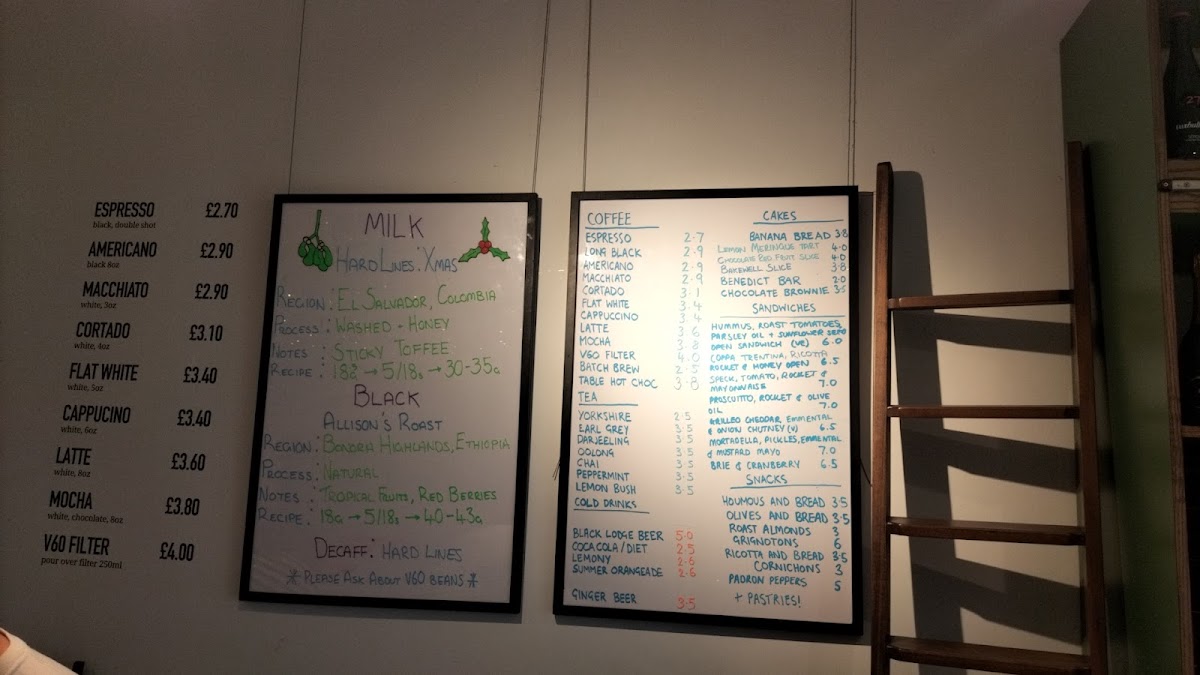 ESPRESSO £2.70
black, double shot
AMERICANO £2.90
black 8oz
MACCHIATO £2.90
white, 3oz
CORTADO £3.10
white, 4oz
FLAT WHITE £3.40
white, 5oz
CAPPUCINO £3.40
white, 6oz
LATTE £3.60
white, 8oz
MOCHA £3.80
white, chocolate, 8oz
V60 FILTER £4.00
pour over filter 250ml
MILK
HARD LINES: XMAS
REGION: EL SALVADOR, COLOMBIA
PROCESS: WASHED + HONEY
NOTES: STICKY TOFFEE
RECIPE: 18g → 5/18s → 30-35g
BLACK
ALLISON'S ROAST
REGION: HIGHLANDS, ETHIOPIA
PROCESS: NATURAL
NOTES: TROPICAL FRUITS, RED BERRIES
RECIPE: 18g → 5/18s → 40-43g
DECAFF: HARD LINES
* PLEASE ASK ABOUT V60 BEANS *
COFFEE
ESPRESSO 2.7
LONG BLACK 2.9
AMERICANO 2.9
MACCHIATO 2.9
CORTADO 3.1
FLAT WHITE 3.4
CAPPUCCINO 3.4
LATTE 3.6
MOCHA 3.8
V60 FILTER 4.0
BATCH BREW 2.5
TABLE HOT CHOC 3.8
TEA
YORKSHIRE 2.5
EARL GREY 3.5
DARJEELING 3.5
OOLONG 3.5
CHAI 3.5
PEPPERMINT 3.5
LEMON BUSH 3.5
COLD DRINKS
BLACK LODGE BEER 5.0
COCA COLA/DIET 2.5
LEMONY 2.6
SUMMER ORANGEADE 2.6
GINGER BEER 3.5
CAKES
BANANA BREAD 3.8
LEMON MERINGUE TART 4.0
CHOCOLATE FRUIT SLICE 4.0
BAKEWELL SLICE 3.8
BENEDICT BAR 2.0
CHOCOLATE BROWNIE 3.5
SANDWICHES
HUMMUS, ROAST TOMATOES,
PARSLEY OIL + SUNFLOWER SEED
OPEN SANDWICH (VE) 6.0
COPPA TRENTINA, RICOTTA
ROCKET & HONEY OPEN 6.5
SPECK, TOMATO, ROCKET &
MAYONNAISE 7.0
PROSCUITTO, ROCKET & OLIVE
OIL 7.0
GRILLED CHEDDAR, EMMENTAL
& ONION CHUTNEY (V) 6.5
MORTADELLA, PICKLES, EMMENTAL
& MUSTARD MAYO 7.0
BRIE & CRANBERRY 6.5
SNACKS
HOUMOUS AND BREAD 3.5
OLIVES AND BREAD 3.5
ROAST ALMONDS 3
GRIGNOTONS 6
RICOTTA AND BREAD 3.5
CORNICHONS 3
PADRON PEPPERS 5
+ PASTRIES!